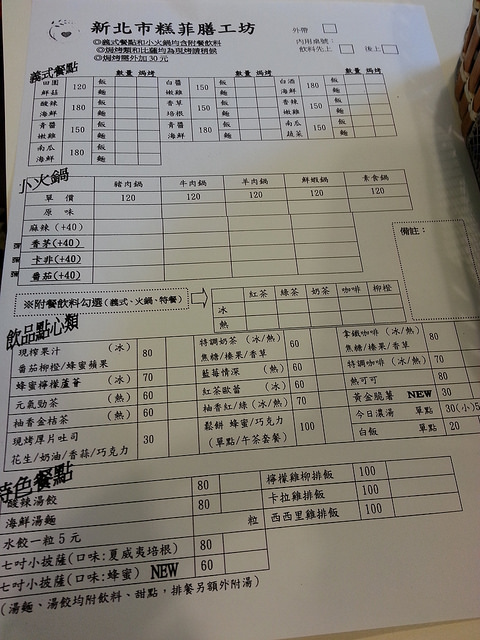 新北市糕菲膳工坊
◎義式餐點和小火鍋均含附餐飲料
◎焗烤類和比薩均為現烤請稍候
◎焗烤需外加30元
外帶
內用桌號：
飲料先上 後上
義式餐點
數量 焗烤 數量 焗烤 數量 焗烤
田園鮮菇 120 飯 麵 白醬嫩雞 150 飯 麵 白酒海鮮 180 飯 麵
酸辣海鮮 180 飯 麵 香草培根 150 飯 麵 香辣嫩雞 150 飯 麵
青醬嫩雞 150 飯 麵 青醬海鮮 180 飯 麵 南瓜蔬菜 150 飯 麵
南瓜海鮮 180 飯 麵
小火鍋
豬肉鍋 牛肉鍋 羊肉鍋 鮮蝦鍋 素食鍋
單價 120 120 120 120 120
原味
麻辣(+40)
香茅(+40)
卡非(+40)
番茄(+40)
備註：
※附餐飲料勾選(義式、火鍋、特餐)
紅茶 綠茶 奶茶 咖啡 柳橙
冰
熱
飲品點心類
現榨果汁 (冰) 80 特調奶茶 (冰/熱) 60 拿鐵咖啡 (冰/熱) 80
番茄柳橙/蜂蜜蘋果 焦糖/榛果/香草 焦糖/榛果/香草
蜂蜜檸檬蘆薈 (冰) 70 藍莓情深 (熱) 60 特調咖啡 (冰/熱) 70
元氣勁茶 (熱) 60 紅茶歐蕾 (冰) 60 熱可可 80
柚香金桔茶 (熱) 60 柚香紅/綠(冰/熱) 70 黃金脆薯 NEW 30
現烤厚片吐司 30 鬆餅 蜂蜜/巧克力 100 今日濃湯 單點 30(小)5
花生/奶油/香蒜/巧克力 (單點/午茶套餐) 白飯 單點 20
特色餐點
酸辣湯餃 80 檸檬雞柳排飯 100
海鮮湯麵 80 卡拉雞排飯 100
水餃一粒5元 粒 西西里雞排飯 100
七吋小披薩(口味:夏威夷培根) 80
七吋小披薩(口味:蜂蜜) NEW 60
(湯麵、湯餃均附飲料、甜點，排餐另額外附湯)